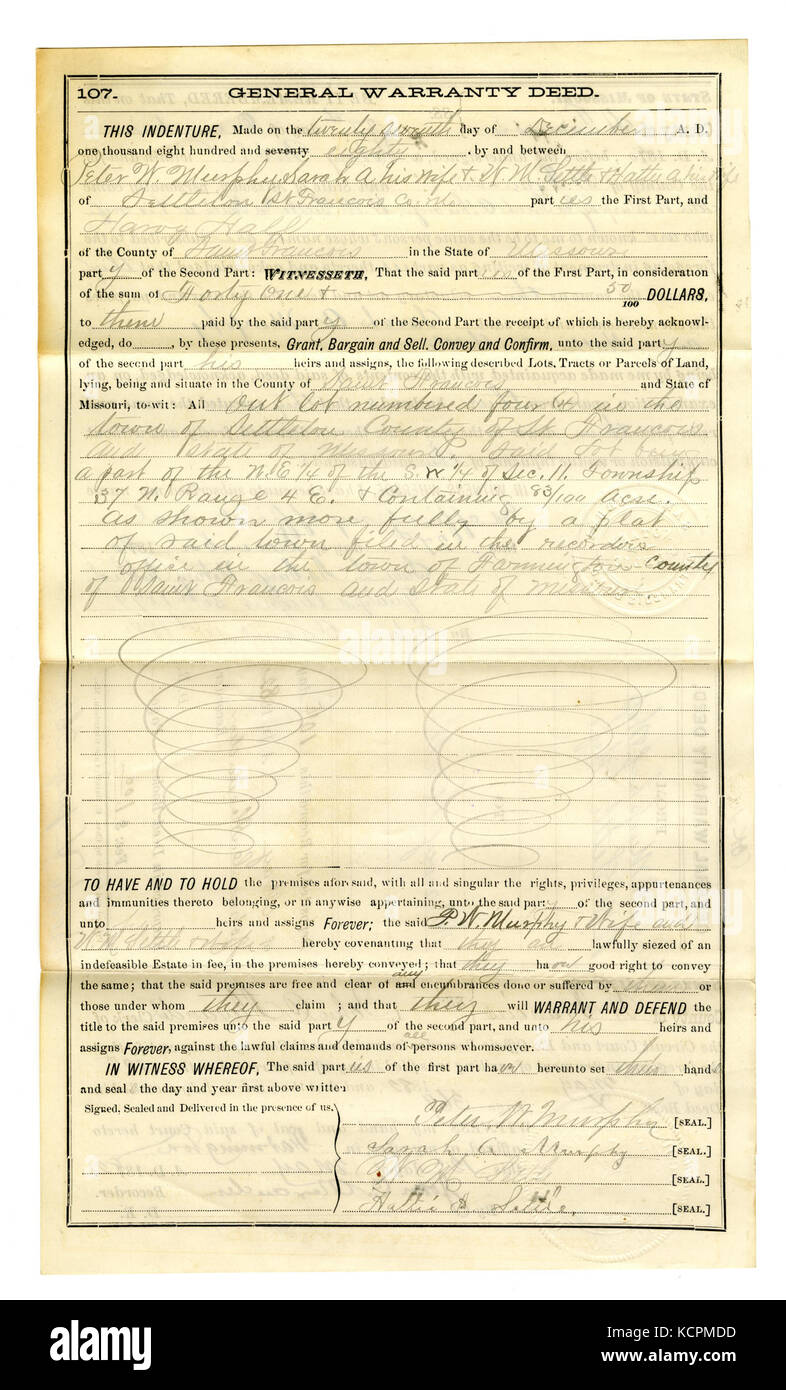 107. GENERAL WARRANTY DEED.
THIS INDENTURE, Made on the twenty seventh day of December A. D.
one thousand eight hundred and seventy eighty, by and between
Peter W. Murphy Sarah A his wife & W M Settle & Hattie A his wife
of Settleton St Francois Co Mo parties the First Part, and
of the County of Saint Francois in the State of Missouri
party of the Second Part: WITNESSETH, That the said parties of the First Part, in consideration
of the sum of Forty One & 50/100 DOLLARS,
to them paid by the said party of the Second Part the receipt of which is hereby acknowl-
edged, do , by these presents, Grant, Bargain and Sell, Convey and Confirm, unto the said party
of the second part his heirs and assigns, the following described Lots, Tracts or Parcels of Land,
lying, being and situate in the County of Saint Francois and State of
Missouri, to-wit: All Out lot numbered four (4) in the
town of Settleton County of St. Francois
and State of Missouri. Said lot being
a part of the N.E 1/4 of the S.W 1/4 of Sec. 11. Township
37 N. Range 4 E. & Containing 83/100 acre.
as shown more fully by a plat
of said town filed in the recorders
office in the town of Farmington County
of Saint Francois and State of Missouri.
TO HAVE AND TO HOLD the premises aforesaid, with all and singular the rights, privileges, appurtenances
and immunities thereto belonging, or in anywise appertaining, unto the said party of the second part, and
unto heirs and assigns Forever; the said P. W. Murphy & Wife and
W M Settle & Wife hereby covenanting that they are lawfully siezed of an
indefeasible Estate in fee, in the premises hereby conveyed; that they have good right to convey
the same; that said premises are free and clear of any encumbrances done or suffered by them or
those under whom they claim ; and that they will WARRANT AND DEFEND the
title to the said premises unto the said party of the second part, and unto his heirs and
assigns Forever, against the lawful claims and demands of all persons whomsoever.
IN WITNESS WHEREOF, The said parties of the first part have hereunto set their hands
and seal the day and year first above written
Signed, Sealed and Delivered in the presence of us.
Peter W. Murphy [SEAL.]
Sarah A. Murphy [SEAL.]
[SEAL.]
Hattie A Settle. [SEAL.]
alamy
alamy
Image ID: KCPMDD
www.alamy.com